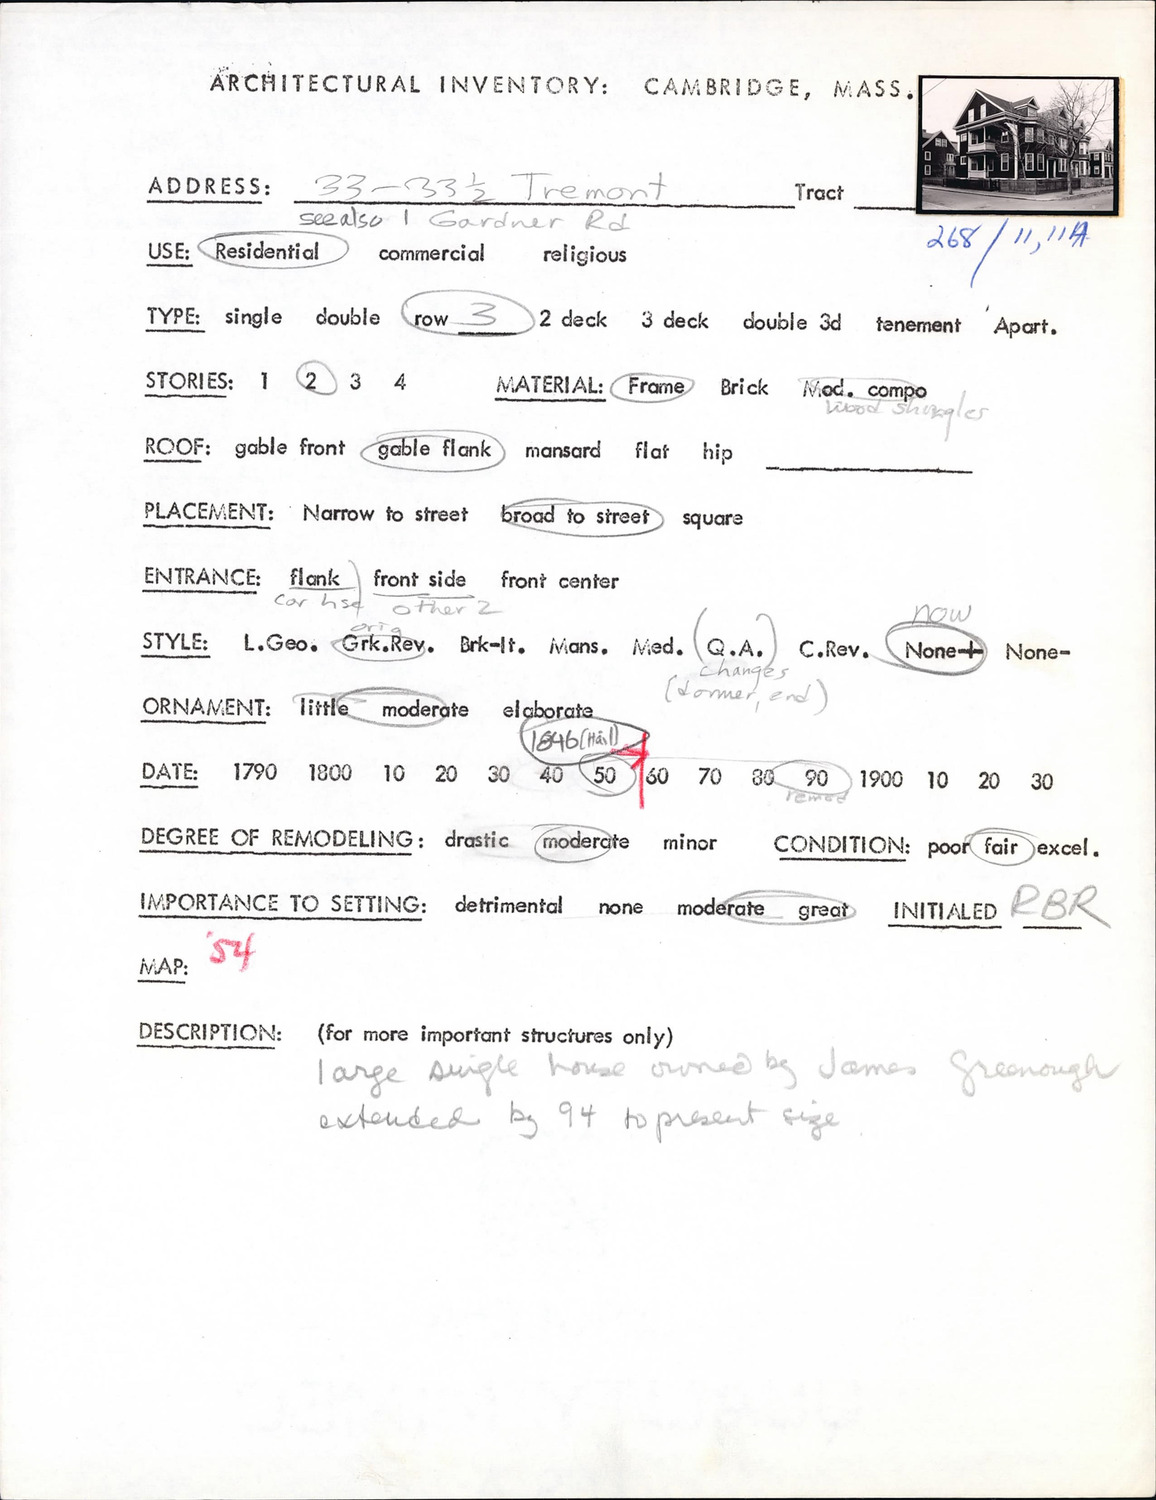 ARCHITECTURAL INVENTORY: CAMBRIDGE, MASS.
ADDRESS: 33-33½ Tremont Tract
see also 1 Gardner Rd
268 / 11, 11A
USE: Residential commercial religious
TYPE: single double row 3 2 deck 3 deck double 3d tenement Apart.
STORIES: 1 2 3 4 MATERIAL: Frame Brick Mod. compo
wood shingles
ROOF: gable front gable flank mansard flat hip
PLACEMENT: Narrow to street broad to street square
ENTRANCE: flank front side front center
cor hse other 2
orig now
STYLE: L.Geo. Grk.Rev. Brk-It. Mans. Med. (Q.A.) C.Rev. None+ None-
changes
(dormer, end)
ORNAMENT: little moderate elaborate
1846
DATE: 1790 1800 10 20 30 40 50 60 70 80 90 1900 10 20 30
remod
DEGREE OF REMODELING: drastic moderate minor CONDITION: poor fair excel.
IMPORTANCE TO SETTING: detrimental none moderate great INITIALED RBR
MAP: '54
DESCRIPTION: (for more important structures only)
large single house owned by James Greenough
extended by 94 to present size